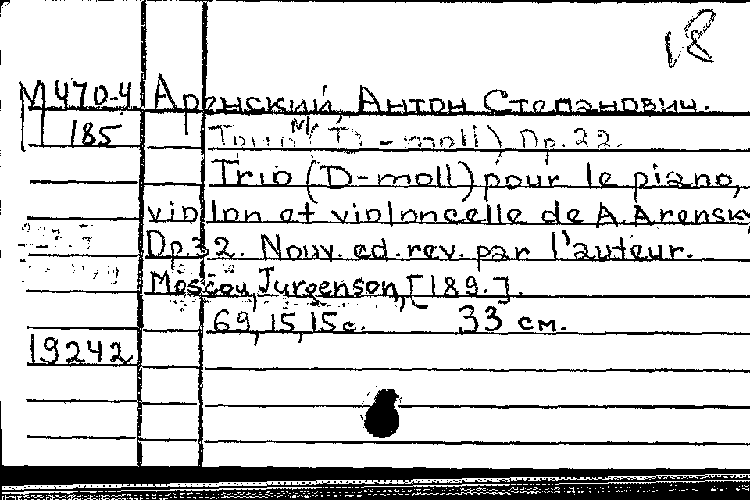 18
М470-4 Аренский, Антон Степанович.
185 Трио (D-moll) Op.22.
Trio (D-moll) pour le piano,
violon et violoncelle de A. Arensky
Op.32. Nouv. ed. rev. par l'auteur.
Moscou, Jurgenson, [189.].
69, 15, 15 с. 33 см.
19242